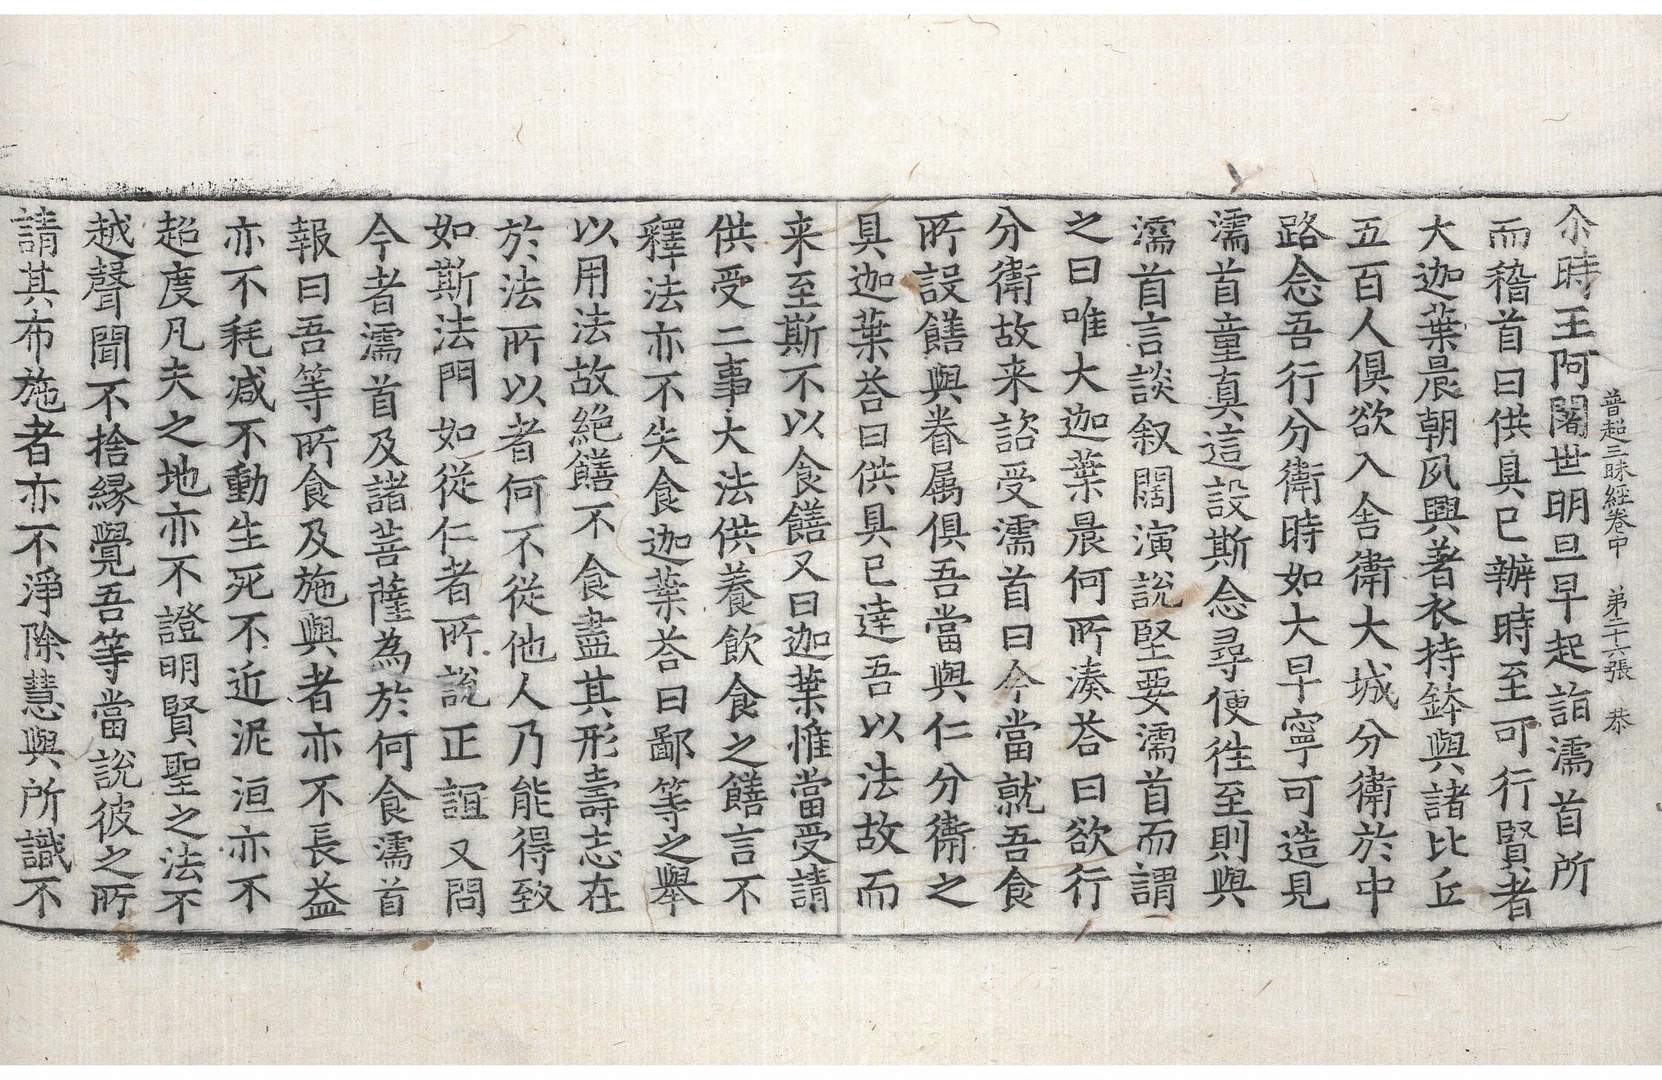 普超三昧經卷中　第二十六張　恭
尒時王阿闍世明旦早起詣濡首所
而稽首曰供具已辦時至可行賢者
大迦葉晨朝夙興著衣持鉢與諸比丘
五百人俱欲入舍衛大城分衛於中
路念吾行分衛時如大早寧可造見
濡首童真這設斯念尋便徃至則與
濡首言談叙闊演說堅要濡首而謂
之曰唯大迦葉晨何所湊荅曰欲行
分衛故来諮受濡首曰今當就吾食
所設饍與眷属俱吾當與仁分衛之
具迦葉荅曰供具已達吾以法故而
来至斯不以食饍又曰迦葉惟當受請
供受二事大法供養飲食之饍言不
釋法亦不失食迦葉荅曰鄙等之舉
以用法故絕饍不食盡其形壽志在
於法所以者何不從他人乃能得致
如斯法門如從仁者所說正誼又問
今者濡首及諸菩薩為於何食濡首
報曰吾等所食及施與者亦不長益
亦不耗減不動生死不近泥洹亦不
超度凡夫之地亦不證明賢聖之法不
越聲聞不捨縁覺吾等當說彼之所
請其布施者亦不淨除慧與所識不